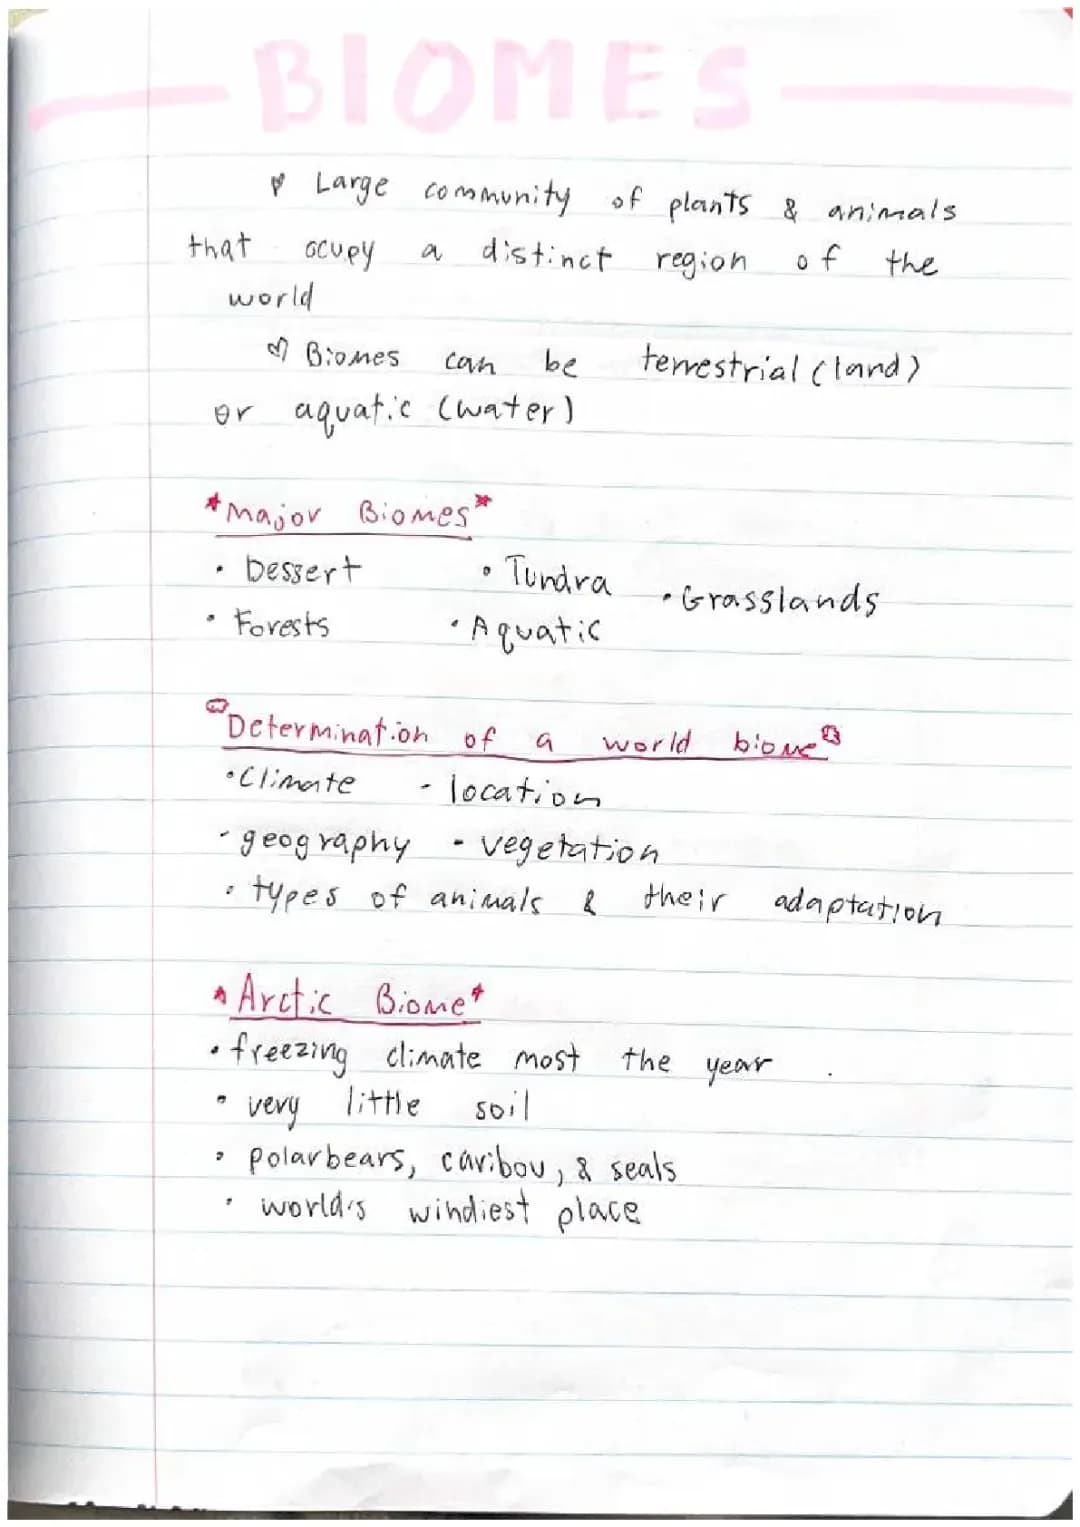 BIOMES
Large community of plants & animals
that ocupy a distinct region of the
world
Biomes can be terrestrial (land)
or aquatic (water)
*Major Biomes*
• Dessert • Tundra • Grasslands
• Forests • Aquatic
Determination of a world biome
• Climate - location
- geography - vegetation
• types of animals & their adaptation
*Arctic Biome*
• freezing climate most the year
• very little soil
• polarbears, caribou, & seals
• world's windiest place